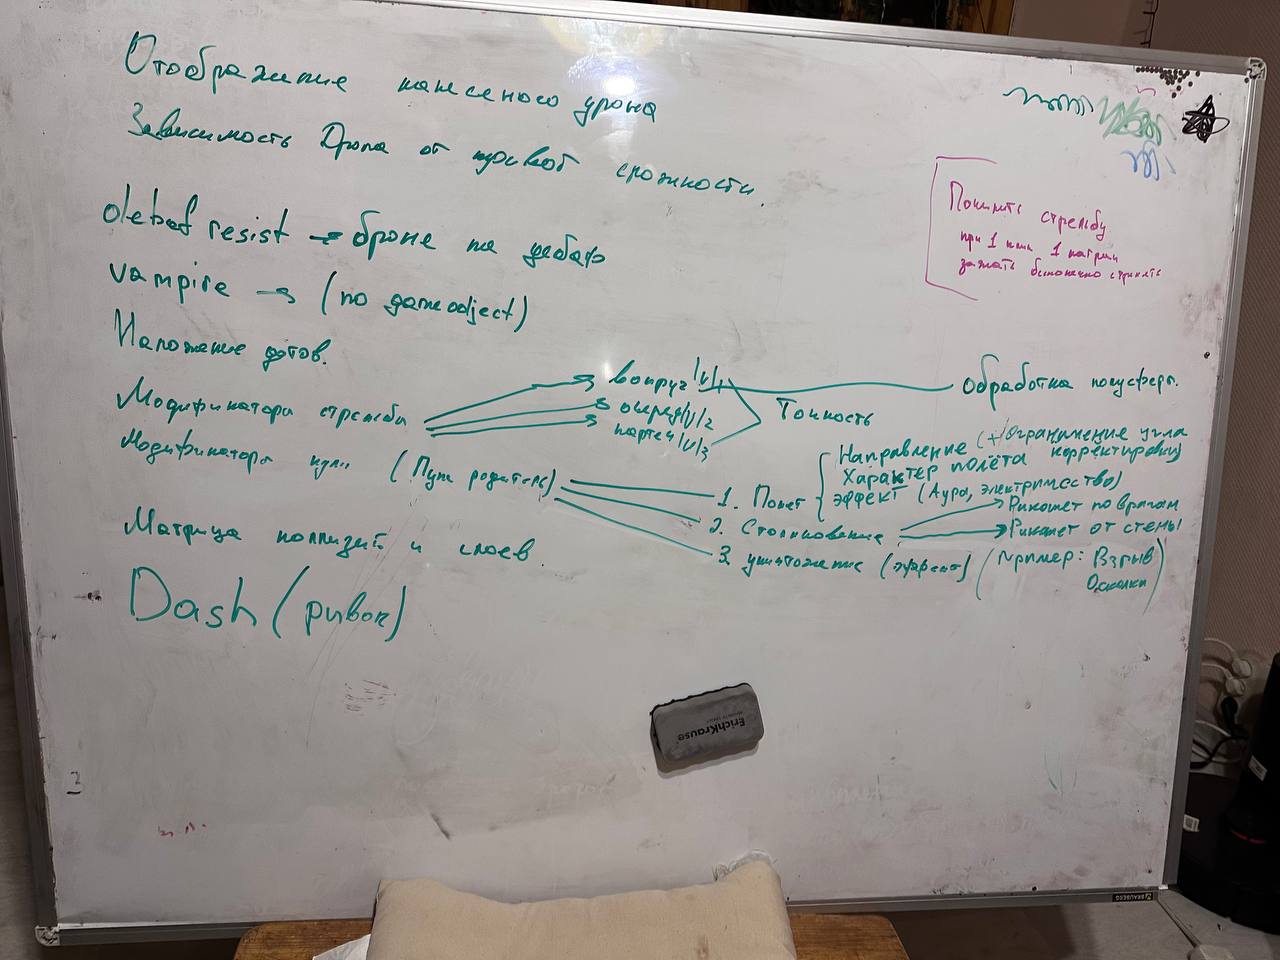 Отображение нанесеного урона
Зависимость Дропа от кривой сложности.
debaf resist → броне на дебаф
vampire → (по gameobject)
Наложение дотов.
Модификатори стрельби
вокруг lvl 1
очередь lvl 2
картеч lvl 3
Точность
Обработка полусферы.
Модификатори пули (Пули родитель)
1. Полет
Направление (+ Ограничение угла корректировки)
Характер полёта
эффект (Аура, электричество)
2. Столкновение
Рикошет по врагам
Рикошет от стены
3. уничтожение (эффект) (пример: Взрыв
Осколки)
Матрица коллизий и слоев.
Dash (рывок)
Починить стрельбу
при 1 клик 1 патрон
зажать бесконечно стрелять
ErichKrause
BRAUBERG